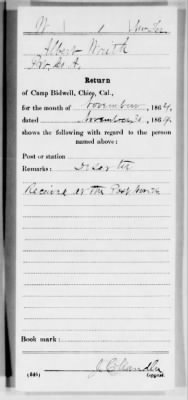 Albert Writh
Return
of Camp Bidwell, Chico, Cal.,
for the month of November, 1864,
dated November 30, 1864,
shows the following with regard to the person
named above:
Post or station
Remarks: Deserter
Receive at the Post
Book mark:
J. C. Chandler
(546) Copyist.